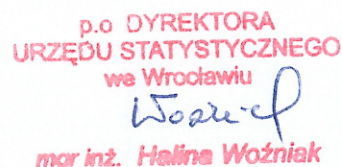 p.o DYREKTORA
URZĘDU STATYSTYCZNEGO
we Wrocławiu
mgr inż. Halina Woźniak